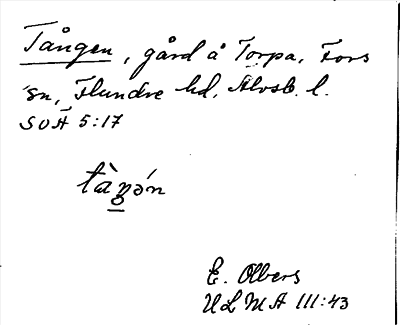 Tången, gård å Torpa, Fors
sn, Flundre hd, Älvsb. l.
SOÄ 5:17
E. Olbers
ULMA 111:43